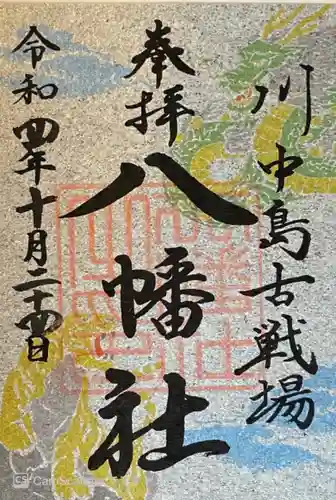 川中島古戦場
奉拝
八幡社
令和四年十月二十四日
CS CamScanner